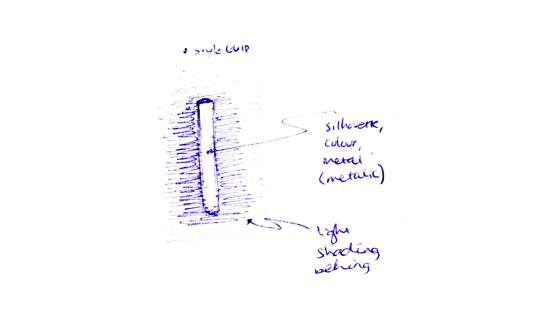 • style
silhouette,
colour,
metal
(metalic)
light
shading
behing